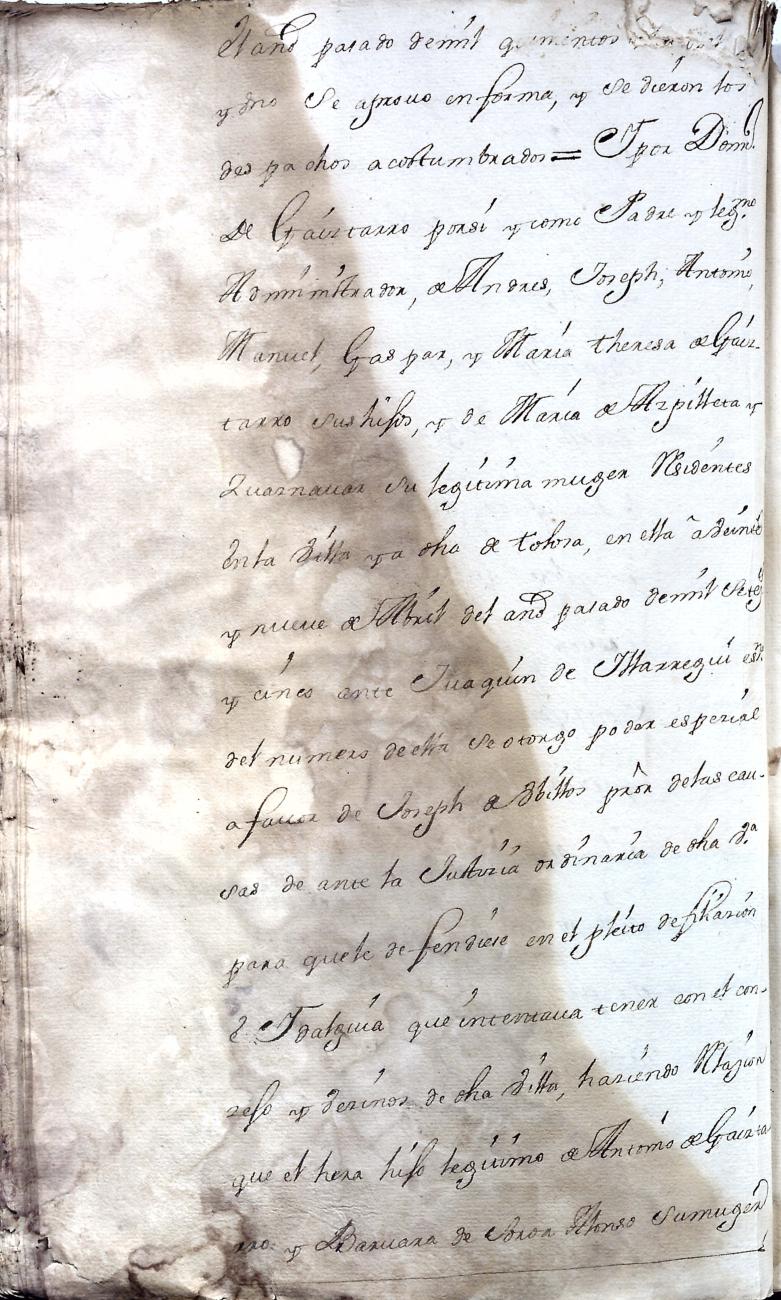 el año pasado demil quinientos
y dno se aprouo en forma, y se dieron los
des pachos acostumbrados = Y por Domº
de Gaiztarro porsi y como Padre y legmo
Administrador, de Andres, Joseph, Antonio,
Manuel, Gaspar, y Maria theresa de Gaiz-
tarro sus hijos, y de Maria de Azpilleta y
su legitima muger Residentes
enla Villa ya dha de tolosa, en ella a veinte
y nueve de Abril del año pasado demil Setezs
y cinco ante Juaquin de Yllarregui essno
del numero deella se otorgo poder especial
a fauor de Joseph de pror delas cau-
sas de ante la Justicia ordinaria de dha Va
para quele defendiese en el pleito defiliacion
e Ydalguia que intentaua tener con el con-
zejo y vezinos de dha Villa, haziendo Relazion
que el hera hijo legitimo de Antonio de Gaizta
rro y Baruara de Alonso Su muger